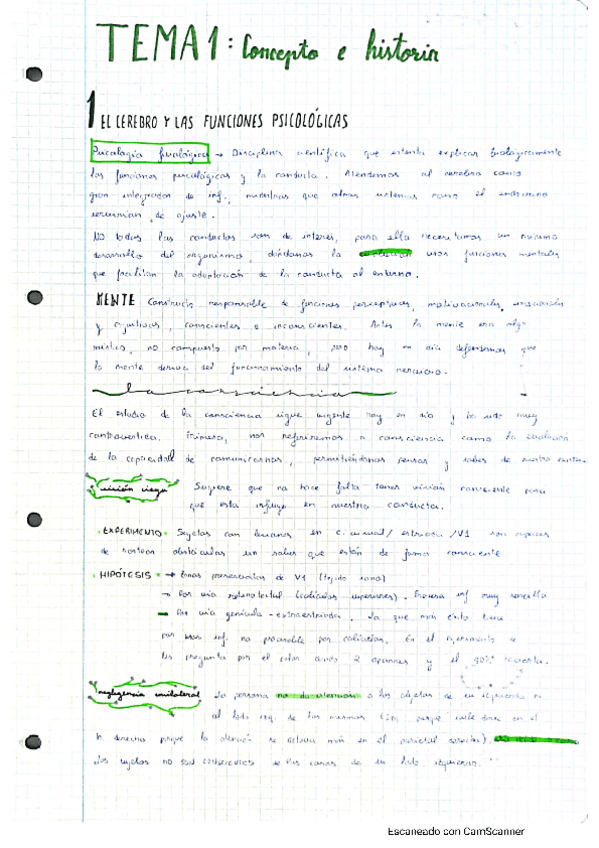 TEMA 1: Concepto e historia
1 EL CEREBRO Y LAS FUNCIONES PSICOLÓGICAS
Psicología fisiológica → Disciplina científica que intenta explicar biológicamente
las funciones psicológicas y la conducta. Atendemos al cerebro como
gran integrador de inf., mientras que otros sistemas como el endocrino
servirían de ajuste.
NO todas las conductas son de interés, para ella necesitamos un mínimo
desarrollo del organismo, dándonos la unas funciones mentales
que facilitan la adaptación de la conducta al entorno.
MENTE Constructo responsable de funciones perceptivas, motivacionales, emocionales
y cognitivas, conscientes o inconscientes. Antes la mente era algo
místico, no compuesto por materia, pero hoy en día defendemos que
la mente deriva del funcionamiento del sistema nervioso.
la consciencia
El estudio de la consciencia sigue vigente hoy en día y ha sido muy
controvertido. Primero, nos referiremos a consciencia como la cualidad
de la capacidad de comunicarnos, permitiéndonos pensar y saber de nuestra
visión ciega Sugiere que no hace falta tener visión consciente para
que esta influya en nuestra conducta.
· EXPERIMENTO · Sujetos con lesiones en c. visual / estriada / V1 son capaces
de sortear obstáculos sin saber que están de forma consciente
· HIPÓTESIS · → zonas preservadas de V1 (tejido sano)
→ Por vía retinotectal (colículos superiores). Procesa inf muy sencilla
→ Por vía genículo-extraestriada, la que más éxito tiene
por usar inf. no procesable por colículos. En el experimento se
les pregunta por el color entre 2 opciones y el 90% acierta.
negligencia unilateral La persona no da atención a los objetos de su izquierda ni
al lado izq. de los mismos (izq porque suele darse en el
h. derecho porque la atención se activa más en el parietal derecho).
Los sujetos no son conscientes de las cosas de su lado izquierdo.
Escaneado con CamScanner